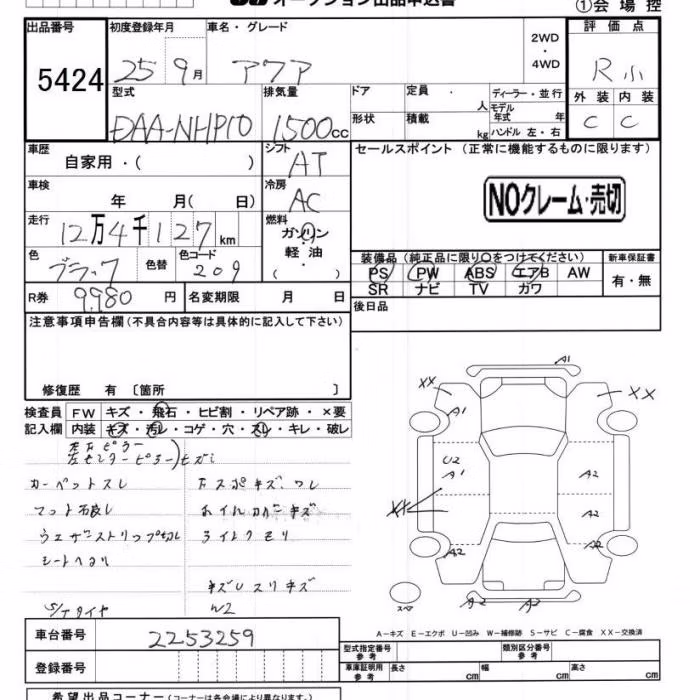 オークション出品申込書
①会場控
出品番号 初度登録年月 車名・グレード 2WD・4WD 評価点
5424 25 9月 アクア R小
型式 排気量 ドア 定員 人 ディーラー・並行 外装 内装
DAA-NHP10 1500cc 形状 積載 kg モデル年式 年 ハンドル 左・右 C C
車歴 自家用・( ) シフト AT セールスポイント (正常に機能するものに限ります)
車検 年 月( 日) 冷房 AC
NOクレーム・売切
走行 12万4千127km 燃料 ガソリン・軽油・( )
色 ブラック 色替 色コード 209
装備品(純正品に限り○をつけてください) 新車保証書
PS PW ABS エアB AW 有・無
SR ナビ TV カワ
R券 9980円 名変期限 月 日 後日品
注意事項申告欄(不具合内容等は具体的に記入して下さい)
修復歴 有〔箇所 〕
検査員 FW キズ・飛石・ヒビ割・リペア跡・×要
記入欄 内装 キズ・汚レ・コゲ・穴・スレ・キレ・破レ
カーペットスレ
マット不良し
ウェザーストリップ切れ
シートヘタリ
ライトクモリ
S/Tタイヤ W2
A1
XX A1 XX
U2
A1 A2
XX A2
A2 A2
スペア A2 A2
A-キズ E-エクボ U-凹み W-補修跡 S-サビ C-腐食 XX-交換済
車台番号 2253259
型式指定番号 参考 類別区分番号 参考
登録番号 車庫証明用 参考 長さ cm 幅 cm 高さ cm
希望出品コーナー(コーナーは各会場により異なります。)